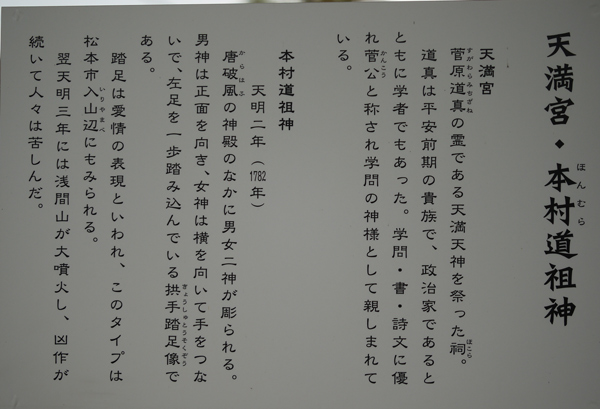 天満宮・本村道祖神
ほんむら
天満宮
菅原道真の霊である天満天神を祭った祠。
すがわらみちざね
ほこら
道真は平安前期の貴族で、政治家であると
ともに学者でもあった。学問・書・詩文に優
れ菅公と称され学問の神様として親しまれて
かんこう
いる。
本村道祖神
天明二年(1782年)
唐破風の神殿のなかに男女二神が彫られる。
からはふ
男神は正面を向き、女神は横を向いて手をつな
いで、左足を一歩踏み込んでいる拱手踏足像で
きょうしゅとうそくぞう
ある。
踏足は愛情の表現といわれ、このタイプは
松本市入山辺にもみられる。
いりやまべ
翌天明三年には浅間山が大噴火し、凶作が
続いて人々は苦しんだ。